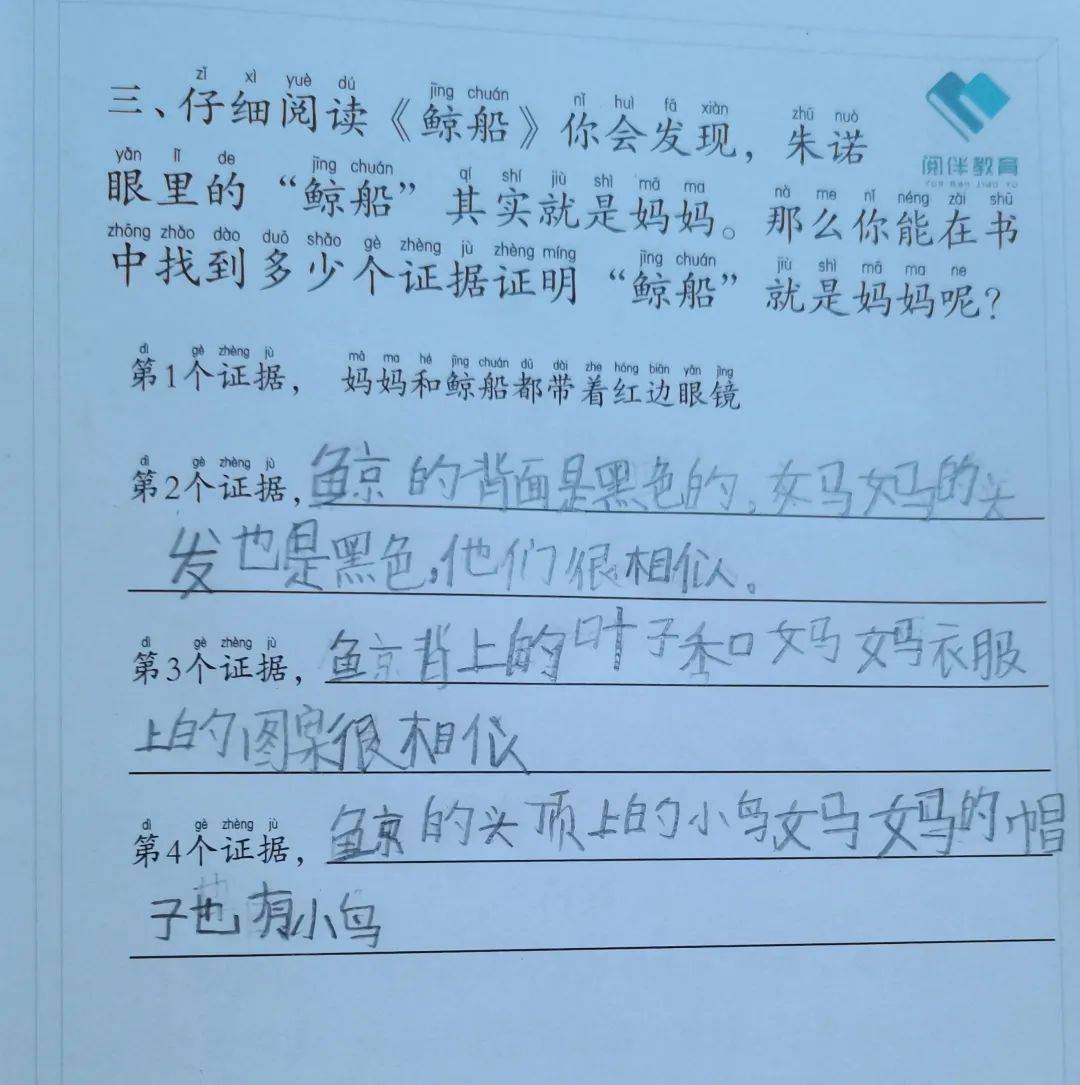 zǐ xì yuè dú jīng chuán nǐ huì fā xiàn zhū nuò
三、仔细阅读《鲸船》你会发现，朱诺
阅伴教育
YUE BAN JIAO YU
yǎn lǐ de jīng chuán qí shí jiù shì mā ma nà me nǐ néng zài shū
眼里的“鲸船”其实就是妈妈。那么你能在书
zhōng zhǎo dào duō shǎo gè zhèng jù zhèng míng jīng chuán jiù shì mā ma ne
中找到多少个证据证明“鲸船”就是妈妈呢？
dì gè zhèng jù mā ma hé jīng chuán dū dài zhe hóng biān yǎn jìng
第1个证据， 妈妈和鲸船都带着红边眼镜
dì gè zhèng jù
第2个证据，鲸的背面是黑色的，妈妈的头
发也是黑色，他们很相似。
dì gè zhèng jù
第3个证据，鲸背上的叶子和妈妈衣服
上的图案很相似
dì gè zhèng jù
第4个证据，鲸的头顶上的小鸟妈妈的帽
子也有小鸟